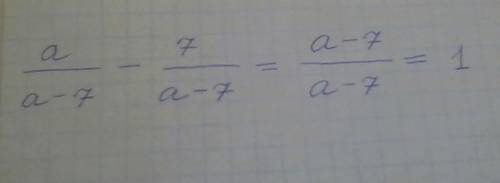 a/(a-7) - 7/(a-7) = (a-7)/(a-7) = 1